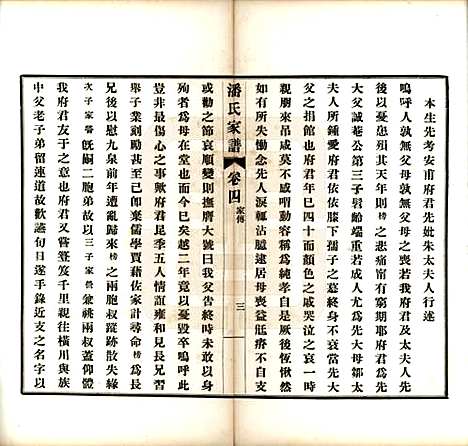 本生先考安甫府君先妣朱太夫人行述
嗚呼人孰無父母之喪若我府君及太夫人先
後以憂思殀其天年則榜之悲痛甯有旣耶先
大父誠菴公第三子髫齡端重若成人尤爲先大母鄒太
夫人所鍾愛府君依依膝下孺子之慕終身不衰當先大
父之捐館也府君年已四十面顏色之戚哭泣之哀一時
親朋來弔咸莫不感嘆動容稱爲純孝自是厥後恆愀然
如有所失慟念先人淚輒沾臆逮居母喪益尫瘠不哀
潘氏家譜
卷四
家傳
三
或勸之節哀順變則撫膺大號曰我父吿終時所不以身
殉者爲母在堂也而今已矣越二年竟以憂毀卒嗚呼此
豈非最傷心之事歟府君昆季五人情誼雍和見長兄習
舉子業刻勵甚苦遂棄儒習賈藉佐家計尋命榜爲長
兄後以慰九泉前年遭亂歸來榜之兩胞叔蹤跡散失緣
次子家駱旣嗣二胞弟故以三子家營兼祧兩叔蓋仰體
我府君友于之意也府君又嘗簦笈千里親往橫川與族
中父老子弟留連道故歡讌旬日遂手錄近支之名字以